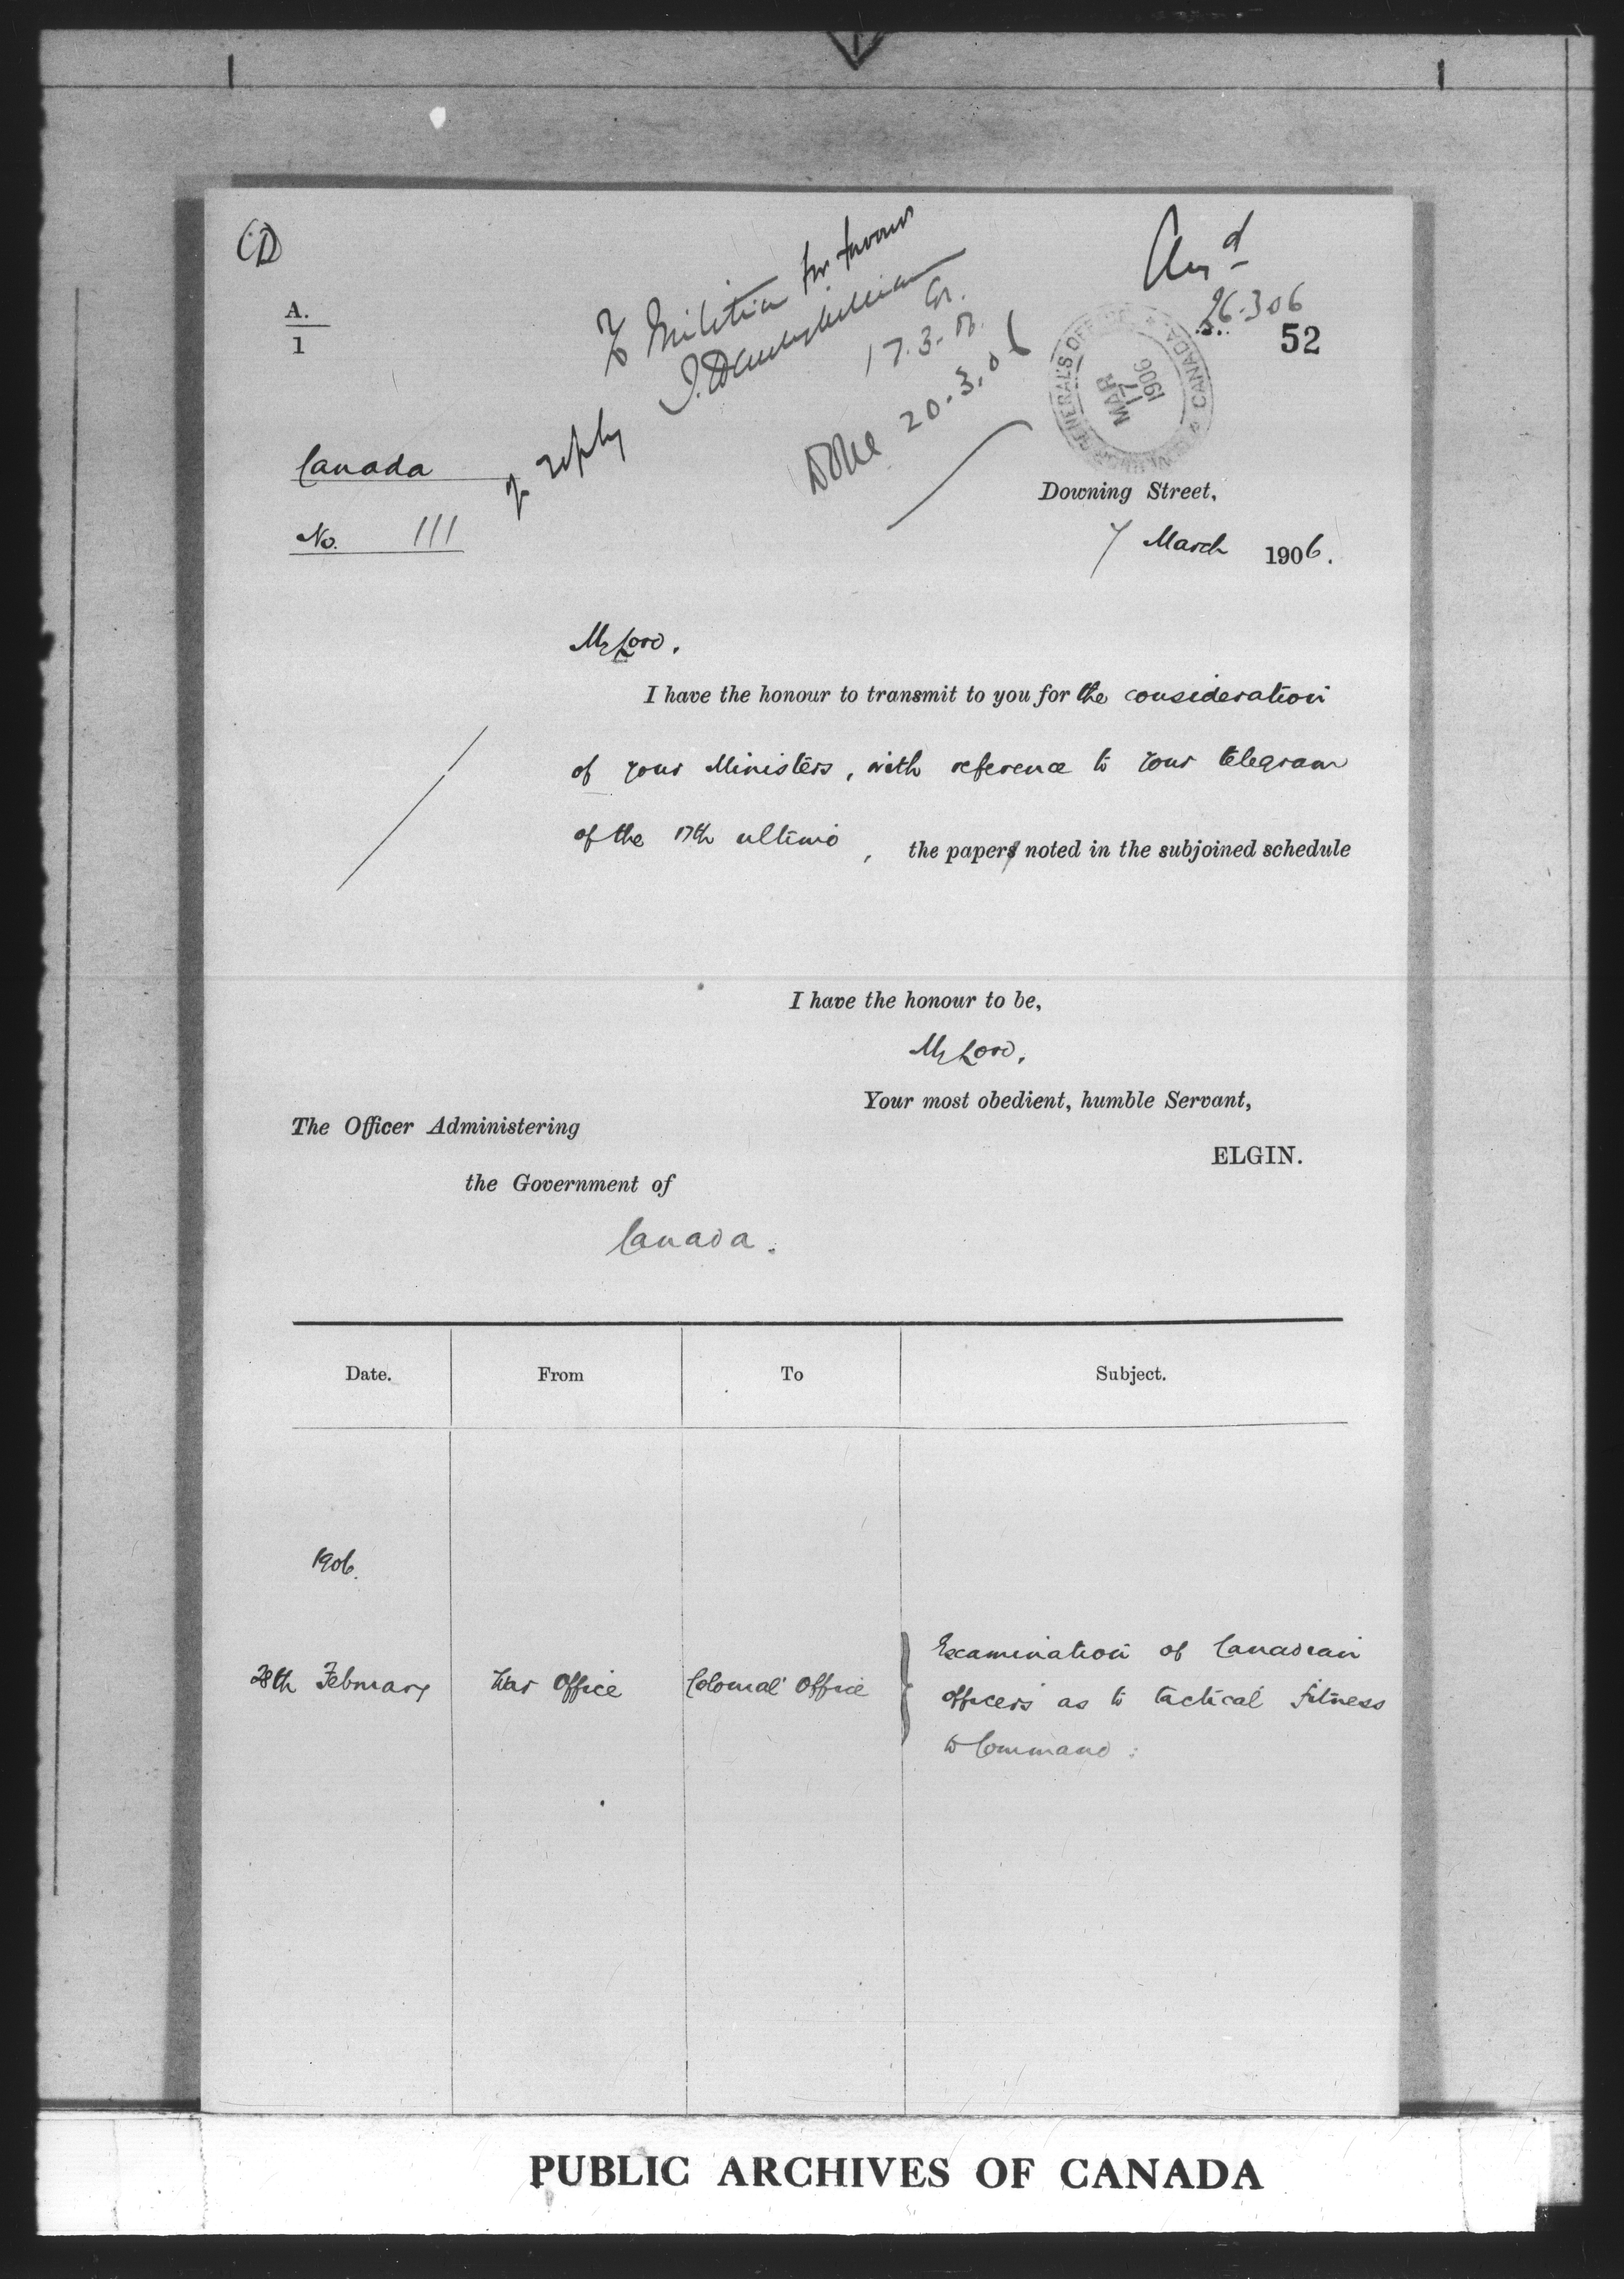 CD
A.
1
To Militia for favour
of reply
Gr.
17.3.06
Done 20.3.06
Ansd
26-3-06
52
GOVERNOR GENERAL'S OFFICE
CANADA
MAR
17
1906
Canada
No. 111
Downing Street,
7 March 1906.
My Lord,
I have the honour to transmit to you for the consideration
of your Ministers, with reference to your telegram
of the 17th ultimo, the papers noted in the subjoined schedule
I have the honour to be,
My Lord,
Your most obedient, humble Servant,
ELGIN.
The Officer Administering
the Government of
Canada.
Date. From To Subject.
1906.
28th February War Office Colonial Office Examination of Canadian
officers as to tactical fitness
to Command:
PUBLIC ARCHIVES OF CANADA